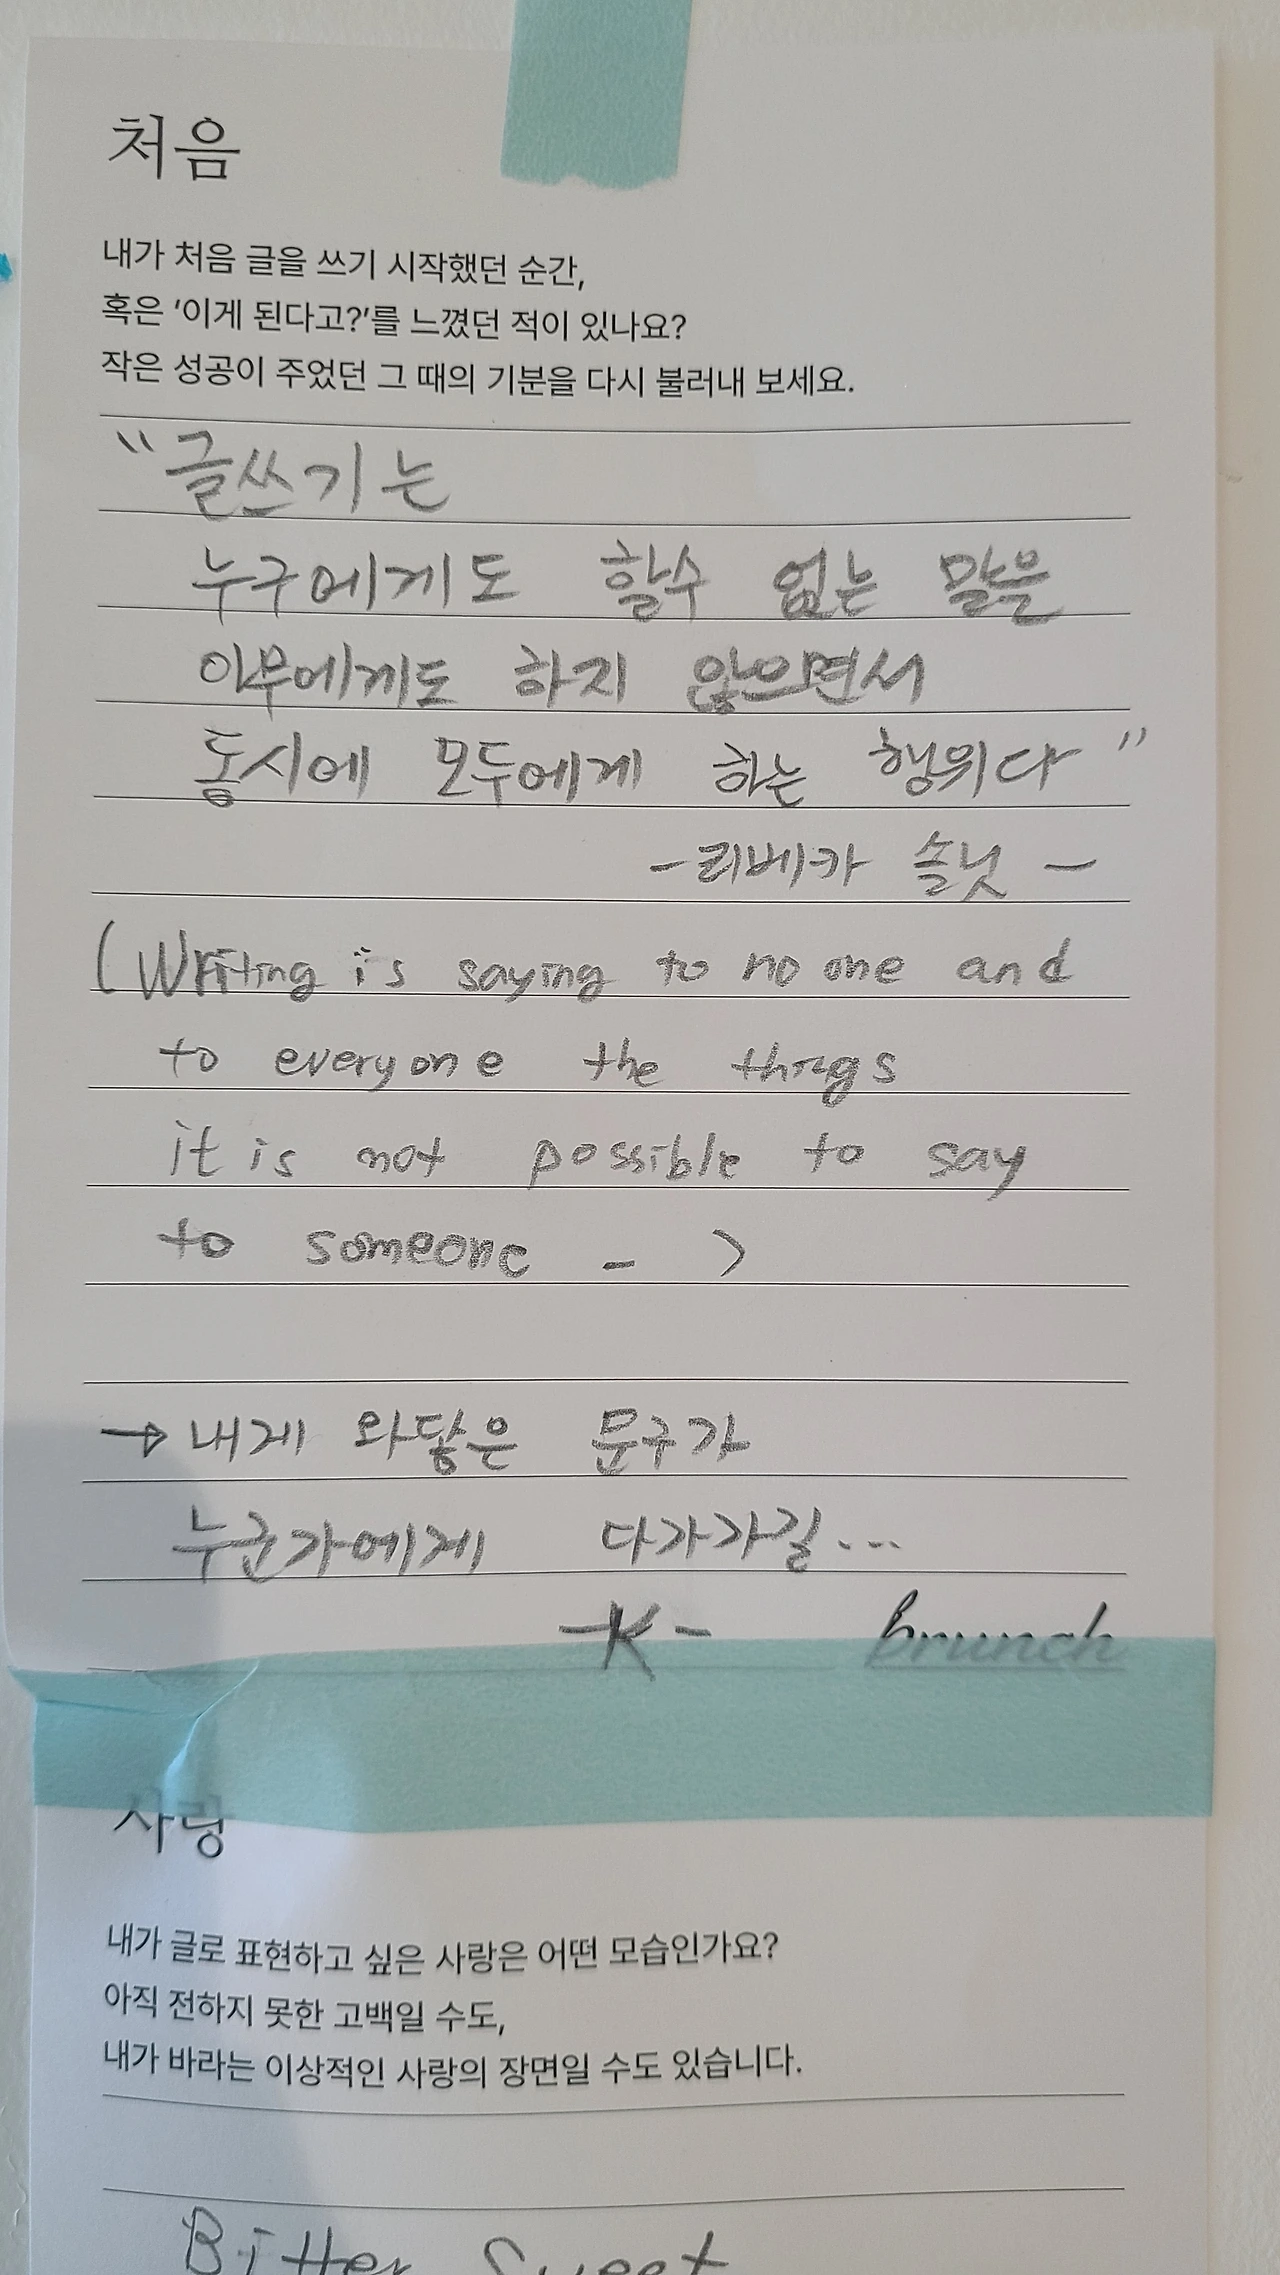 처음
내가 처음 글을 쓰기 시작했던 순간,
혹은 '이게 된다고?'를 느꼈던 적이 있나요?
작은 성공이 주었던 그 때의 기분을 다시 불러내 보세요.
"글쓰기는
누구에게도 할수 없는 말을
아무에게도 하지 않으면서
동시에 모두에게 하는 행위다"
-리베카 솔닛-
(Writing is saying to no one and
to everyone the things
it is not possible to say
to someone - )
→ 내게 와닿은 문구가
누군가에게 다가가길...
-K- brunch
사랑
내가 글로 표현하고 싶은 사랑은 어떤 모습인가요?
아직 전하지 못한 고백일 수도,
내가 바라는 이상적인 사랑의 장면일 수도 있습니다.
Bitter Sweet